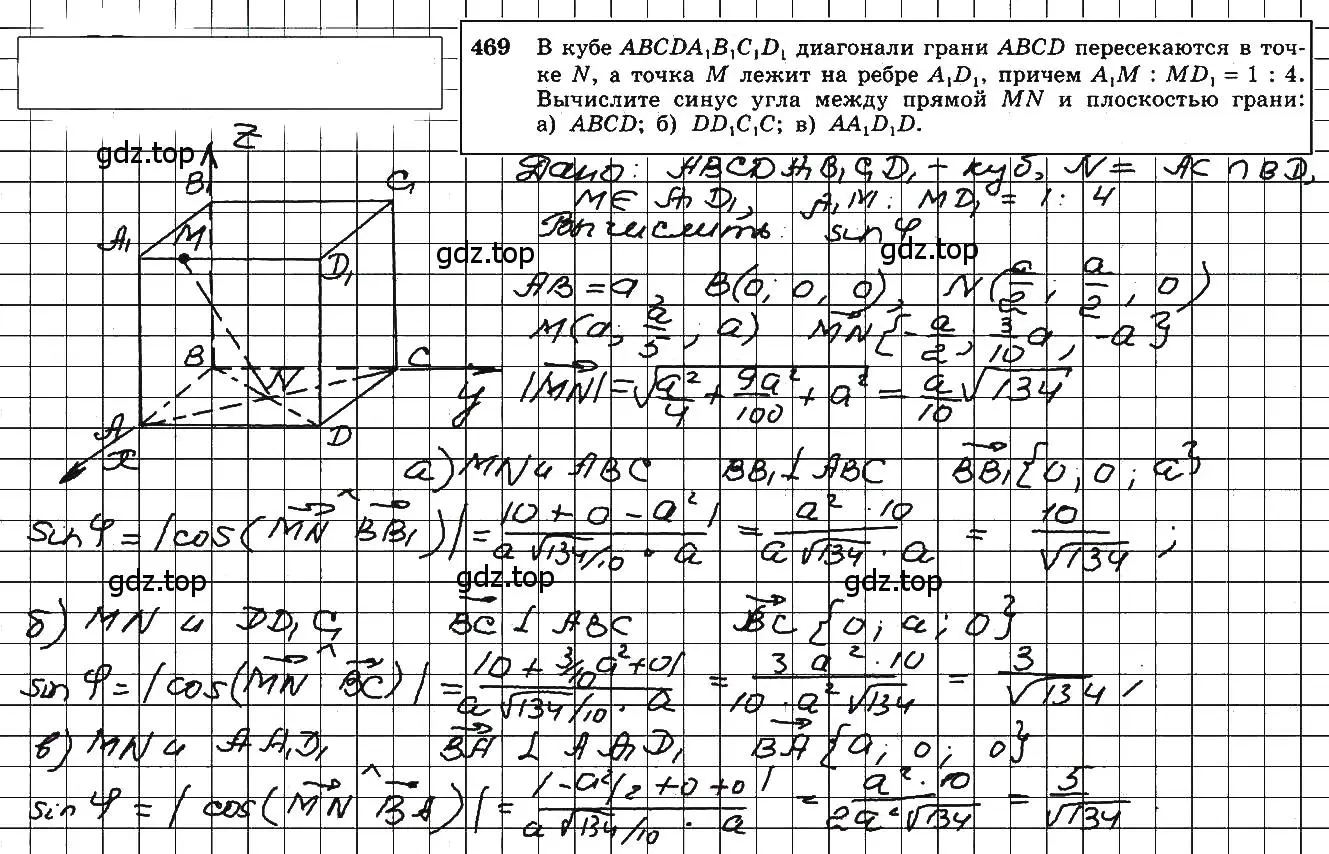 469 В кубе ABCDA₁B₁C₁D₁ диагонали грани ABCD пересекаются в точ-
ке N, а точка M лежит на ребре A₁D₁, причем A₁M : MD₁ = 1 : 4.
Вычислите синус угла между прямой MN и плоскостью грани:
а) ABCD; б) DD₁C₁C; в) AA₁D₁D.
gdz.top
Z
B₁
C₁
A₁
M
D₁
B
C
N
y
A
D
x
Дано: ABCDA₁B₁C₁D₁ - куб, N = AC ∩ BD,
M ∈ A₁D₁, A₁M : MD₁ = 1 : 4
Вычислить: sin φ
gdz.top gdz.top
AB = a, B(0; 0, 0), N(a/2; a/2, 0)
M(a; a/5, a) MN{-a/2, 3/10 a, -a}
|MN| = √(a²/4 + 9a²/100 + a²) = a/10 √134
а) MN и ABC BB₁ ⊥ ABC BB₁{0; 0; a}
sin φ = |cos(MN ^ BB₁)| = |0 + 0 - a²|/(a√134/10 · a) = a² · 10/(a√134 · a) = 10/√134;
gdz.top gdz.top gdz.top
б) MN и DD₁C₁ BC ⊥ ABC BC{0; a; 0}
sin φ = |cos(MN ^ BC)| = |0 + 3/10 a² + 0|/(a√134/10 · a) = 3a² · 10/(10 · a²√134) = 3/√134,
в) MN и AA₁D₁ BA ⊥ AA₁D₁ BA{a; 0; 0}
sin φ = |cos(MN ^ BA)| = |-a²/2 + 0 + 0|/(a√134/10 · a) = a² · 10/(2a²√134) = 5/√134.